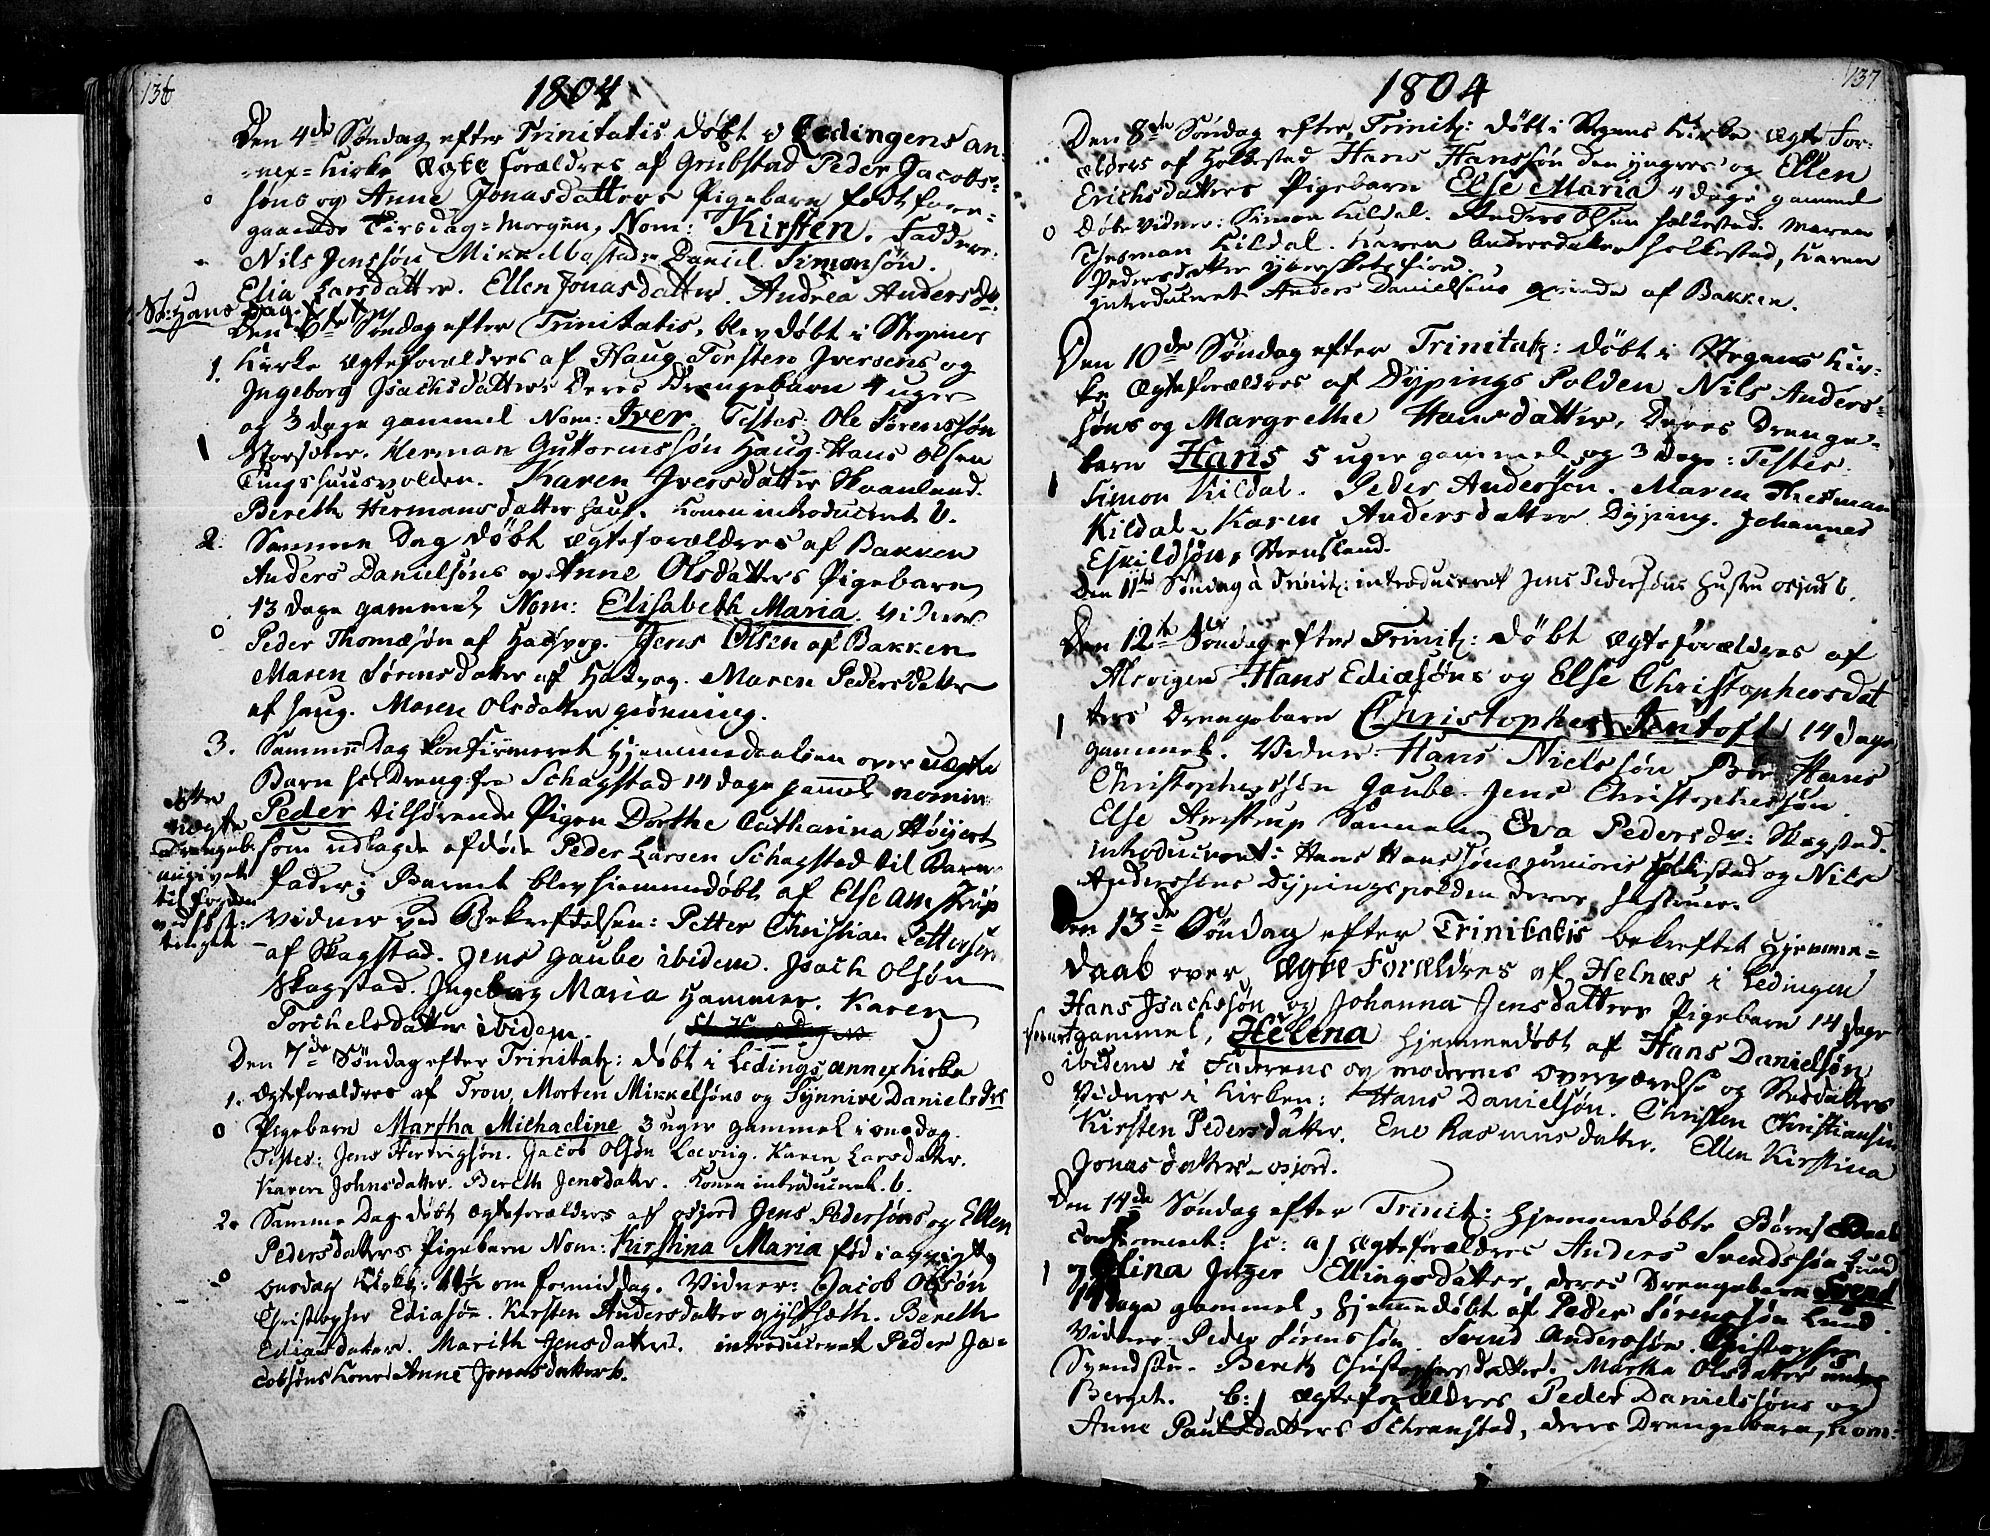 136
1804
Den 4de Søndag efter Trinitatis døbt i Lødingens an-
nex-Kirke Ægte forældres af Grubstad Peder Jacobs-
søns og Anne Jonasdatters Pigebarn født fore-
gaaende Tirsdag-Morgen, Nom: Kirsten. Faddere:
Nils Jenssøn Mikkelbostad, Daniel Simonsøn.
Elia Larsdatter. Ellen Jonasdatter. Andrea Andersdr:
St: Hans Dag.
Den 5te Søndag efter Trinitatis, blev døbt i Stegens
1. Kirke ægteforældres af Haug Torsten Iversens og
Ingeborg Isachsdatters Deres Drengebarn 4 uger
og 3 dage gammel Nom: Iver. Testes: Ole Sørenssøn
Storsæter. Herman Guttormssøn Haug. Hans Olsen
Tingshuusvolden. Karen Iversdatter Skaanland.
Bereth Hermansdatter Haug. Konen introduceret b.
2. Samme Dag døbt ægteforældres af Bakken
Anders Danielsøns og Anne Olsdatters Pigebarn
13 dage gammel Nom: Elisabeth Maria. Vidner
Peder Thomæsøn af Hasvog. Jens Olsen af Bakken
Maren Sørensdatter af Hasvog. Maren Pedersdatter
af Haug. Maren Olsdatter Grønning.
3. Samme Dag konfirmeret Hjemmedaaben over uægte
Barn Dreng fra Schagstad 14 dage gammel nomin:
Peder tilhørende Pigen Dorthe Catharina Høyert
som udlagde afdøde Peder Larsen Schagstad til Barne-
Fader; Barnet blev hiemmedøbt af Else Amstrup
uægte
Drengeb.
angivet
til fogden
tinget
Vidner ved Bekreftelsen: Petter Christian Pettersen
af Skagstad. Jens Gaube ibidem. Isach Olsøn
Skagstad. Ingeborg Maria Hammer. Karen
Torchelsdatter ibidem.
Den 7de Søndag efter Trinitatz: døbt i Lødings annexkirke
1. Ægteforældres af Trow, Morten Mikkelsøns og Synnive Daniels drs
Pigebarn Martha Michaeline 3 uger gammel i onsdag.
Testes: Jens Hertvigsøn. Jacob Olsøn Karen Larsdatter.
Karen Johnsdatter. Bereth Jensdatter. Konen introduceret. b.
2. Samme Dag døbt ægteforældres af Osjord Jens Pedersøns og Ellen
Pedersdatters Pigebarn Nom: Kirstina Maria fød i
onsdag Klokk: 11½ om formiddag. Vidner: Jacob Olsøn
Christopher Ediasøn. Kirsten Andersdatter Bereth
Ediasdatter. Marith Jensdatter. introduceret Peder Ja-
cobsøns Kone Anne Jonasdatter b.
137
1804
Den 8de Søndag efter Trinitz: døbt i Stegens Kirke ægte For-
ældres af Holkestad Hans Hanssøn den yngres og Ellen
Erichsdatters Pigebarn Else Maria 4 dage gammel
Døbe Vidner: Simon Kildal. Anders Olsen Holkestad. Maren
Thesman Kildal. Karen Andersdatter Holkestad, Karen
Pedersdatter
introduceret Anders Danielsøns qvinde af Bakken.
Den 10de Søndag efter Trinitatz: døbt i Stegens Kir-
ke ægteforældres af Dyping Polden Nils Anders-
søns og Margrethe Hansdatter, Deres Drenge-
barn Hans 5 uger gammel og 3 Dage: Testes.
Simon Kildal. Peder Anderssøn. Maren Thesman
Kildal. Karen Andersdatter Dyping. Johannes
Eskildsøn, Stensland.
Den 11te Søndag à Trinit: introduceret Jens Pedersøns Hustru Osjord b.
Den 12te Søndag efter Trinitz: døbt ægteforældres af
Alevigen Hans Ediæsøns og Else Christophersdat
ters Drengebarn Christopher Jentoft 14 dage
gammel. Vidner: Hans Nielssøn Hans
Christophersøn Gaube. Jens Christophersøn.
Else Amstrup Eva Pedersdr: Skagstad.
introduceret: Hans Hanssøns junioris Holkestad og Nils
Anderssøns Dypingspolden deres hustruer.
Den 13de Søndag efter Trinitatis bekreftet Hjemme-
daab over ægte Forældres af Helnæs i Lødingen
Hans Isachssøn og Johanna Jensdatters Pigebarn 14 dage
gammel, Helena hjemmedøbt af Hans Danielsøn
ibidem i Faderens og moderens overværelse og
Vidner i Kirken: Hans Danielsøn. Christen Christiansen
Kirsten Pedersdatter. Ene Rasmusdatter. Ellen Kirstina
Jonasdatter Osjord.
Den 14de Søndag efter Trinitz: hjemmedøbte Børns Daab
confirmeret: sc: a) ægteforældres Anders Svendssøn Lund
og Elina Inger Ellingsdatter, deres Drengebarn Svend
14 dage gammel, hjemmedøbt af Peder Sørenssøn Lund.
Vidner: Peder Sørenssøn. Svend Anderssøn. Christopher
Svendsøn. Bereth Christophersdatter. Martha Olsdatter under
Berget. b:) ægteforældres Peder Danielssøns og
Anne Paulsdatters Schranstad, deres Drengebarn, hom-